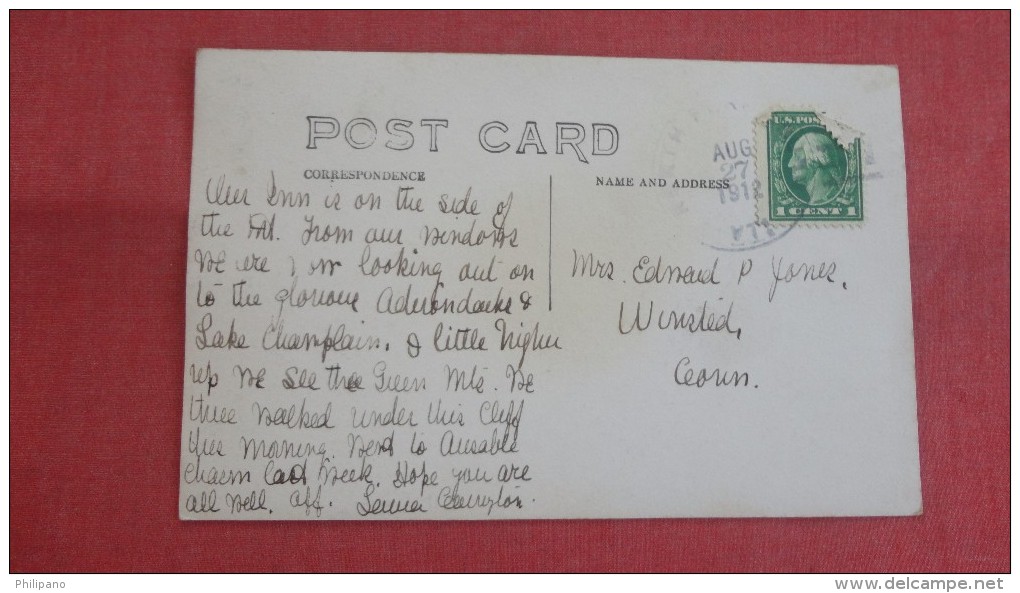 POST CARD
CORRESPONDENCE
NAME AND ADDRESS
AUG
27
1912
VT.
U.S. POS
1 CENT 1
Our Inn is on the side of
the Mt. From our windows
we are now looking out on
to the glorious Adirondacks &
Lake Champlain. A little higher
up we see the Green Mts. We
three walked under this Cliff
this morning. Went to Ausable
Chasm last week. Hope you are
all well. Aff.
Mrs. Edward P Jones,
Winsted,
Conn.
Philipano
www.delcampe.net